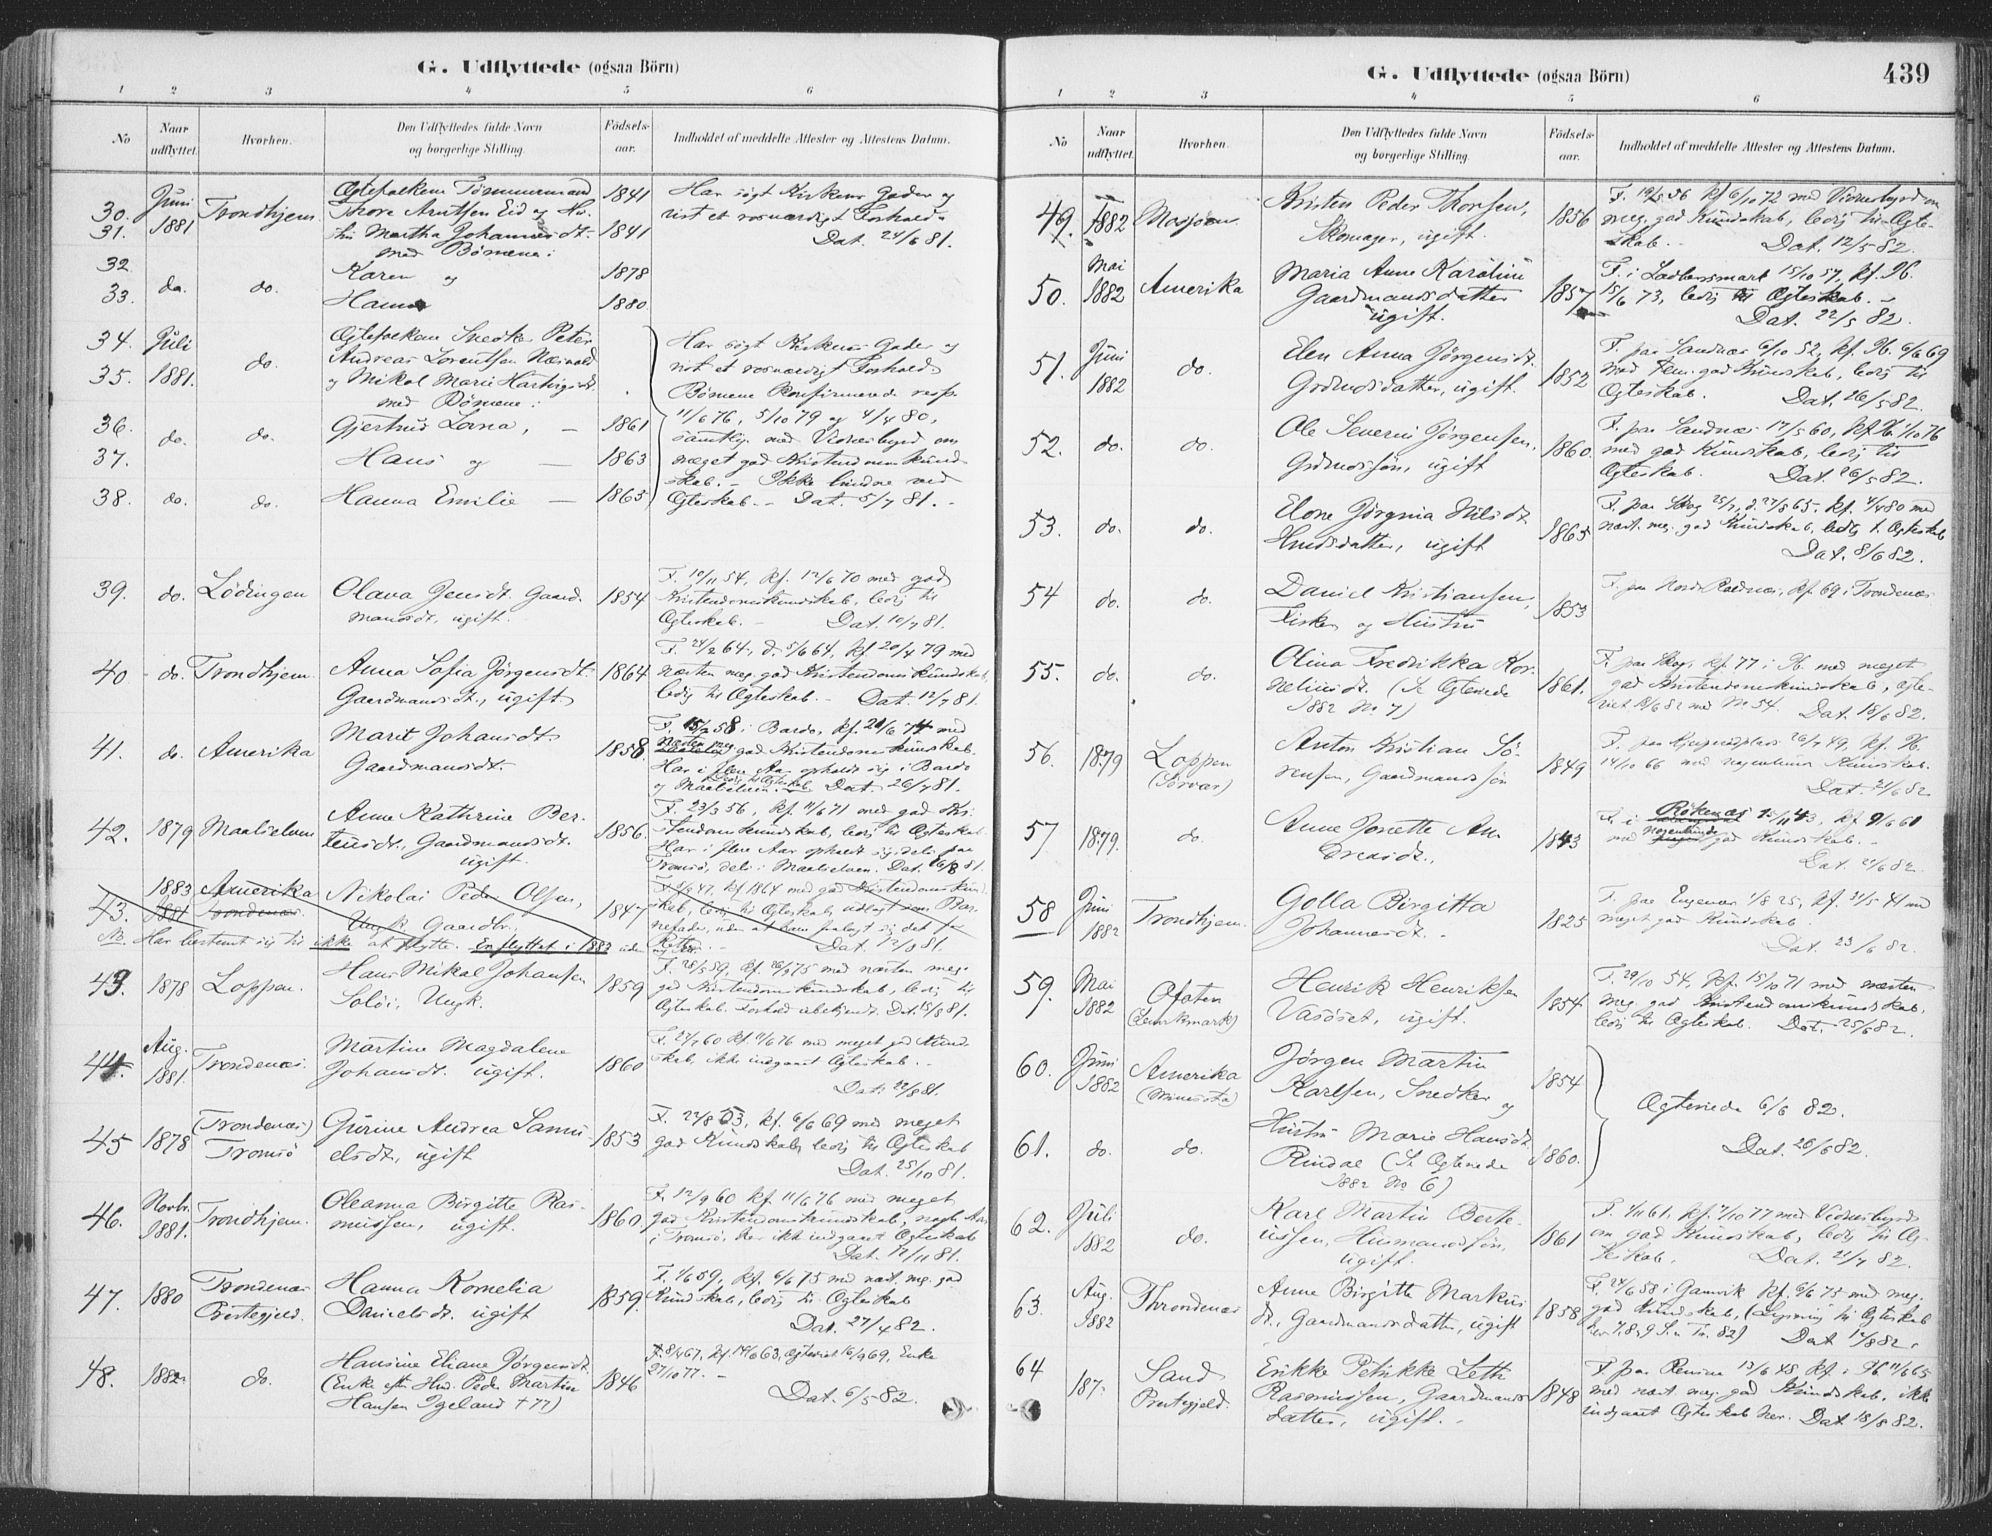 G. Udflyttede (ogsaa Börn)
1 2 3 4 5 6
No
Naar udflyttet.
Hvorhen.
Den Udflyttedes fulde Navn og borgerlige Stilling.
Födsels-aar.
Indholdet af meddelte Attester og Attestens Datum.
30. Juni Trondhjem Egtefolkene Tømmermand 1841 Har søgt Kirkens Goder og
31. 1881 Thore Arntsen Eid og Hu- vist et rosværdigt Forhold.
stru Martha Johannesdt. 1841 Dat. 24/6 81.
med Børnene:
32 do. do. Karen og 1878
33. Hanna 1880
34. Juli do. Egtefolkene Snedker Peter Har søgt Kirkens Goder og
35. 1881. Andreas Lorentsen Næsvold vist et rosværdigt Forhold.
og Mikal Marie Hartvigsdt. Børnene Konfirmerede resp.
med Børnene: 11/6 76, 5/10 79 og 4/4 80,
36. do. do. Gjertrud Lorna, — 1861 samtlige med Vidnesbyrd om
37. Hans og — 1863 meget god Kristendomskund-
skab. - Ikke bundne med
38. do. do. Hanna Emilie — 1865 Egteskab. - Dat. 5/7 81. -
39. do. Lödingen Olava Jensdt. Gaard- 1854 F. 10/11 54, kf. 12/6 70 med god
mandsdt., ugift. Kristendomskundskab, ledig til
Egteskab. - Dat. 10/7 81.
40 do. Trondhjem Anna Sofia Jørgensdt. 1864 F. 24/2 64, d. 5/6 64, kf 20/4 79 med
Gaardmandsdt., ugift. næsten meg. god Kristendomskundskab,
ledig til Egteskab. - Dat. 12/7 81.
41. do. Amerika Marit Johansdt. 1858 F. 15/2 58 i Bardo, kf. 21/6 74 med
Gaardmandsdt. næsten meg. god Kristendomskundskab.
Har i flere Aar opholdt sig i Bardo
og Maalselven. Ledig til Egteskab. Dat. 26/7 81.
42. 1879 Maalselven Anne Kathrine Ber- 1856. F. 23/3 56, kf 11/6 71 med god Kri-
tensdt., Gaardmandsdt. stendomskundskab, ledig til Egteskab.
ugift. Har i flere Aar opholdt sig dels paa
Tromsö, dels i Maalselven. Dat. 6/8 81.
43. 1883 1881 Amerika Trondenæs Nikolai Peder Olsen, 1847 47, kf 1864 med god Kristendomskund-
Ungk. Gaardbr. skab, ledig til Egteskab,
Dat. 12/8 81.
NB. Har bestemt sig til ikke at flytte. Enflyttet i 1883 uden
43. 1878 Loppen. Hans Mikal Johansen 1859 F. 28/5 59, kf. 26/9 75 med næsten meg.
Ungk. god Kristendomskundskab, ledig til
Egteskab. Forhold ubekjendt. Dat. 15/8 81.
44. Aug. 1881. Trondenæs. Martine Magdalene 1860 F. 27/7 60 kf. 11/6 76 med meget god Kund-
Johansdt. ugift. skab, ikke indgaaet Egteskab. -
Dat. 22/8 81.
45 1878 (Trondenæs) Gurine Andrea Samu- 1853 F. 22/8 53, kf. 6/6 69 med meget
Tromsö elsdt., ugift god Kundskab, ledig til Egteskab
Dat. 25/10 81.
46. Novbr. 1881. Trondhjem. Oleanna Birgitte Ras- 1860 F. 12/9 60 kf. 11/6 76 med meget
mussen, ugift. god Kristendomskundskab,
i Tromsö, har ikke indgaaet Egteskab
Dat. 12/11 81.
47. 1880 Trondenæs Hanna Kornelia 1859. kf. 6/6 75 med næst. meg. god
Prestegjeld. Danielsdt. ugift Kundskab, ledig til Egteskab
Dat. 27/4 82.
48. 1882 do. Hansine Eliane Jørgensdt. 1846 F. 8/4 67, kf. 14/6 63, Egteviet 16/9 69, Enke
(Enke efter Hmd. Peder Martin 27/10 77. -
Hansen Igeland † 77) Dat. 6/5 82.
G. Udflyttede (ogsaa Börn)
439
1 2 3 4 5 6
No
Naar udflyttet.
Hvorhen.
Den Udflyttedes fulde Navn og borgerlige Stilling.
Födsels-aar.
Indholdet af meddelte Attester og Attestens Datum.
49. 1882 Mosjøen. Kristen Peder Thorsen, 1856 F. 19/5 56 kf 6/10 72 med Vidnesbyrd om
Skomager, ugift. meg. god Kundskab, ledig til Egte-
skab. - Dat. 12/5 82.
50. Mai 1882 Amerika Maria Anne Karoline 1857 F. i Ladbergsmark 15/10 57, kf. Ib.
Gaardmandsdatter 15/6 73, ledig til Egteskab. -
ugift. Dat. 22/5 82.
51. Juni 1882 do. Elen Anna Jørgensdt. 1852 F. paa Sandnæs 6/10 52, kf. Ib. 6/6 69
Grdmdsdatter, ugift. med tem. god Kundskab, ledig til
Egteskab. Dat. 26/5 82.
52. do. do. Ole Severin Jørgensen. 1860. F. paa Sandnæs 17/5 60, kf Ib. 1/10 76
Grdmdssøn, ugift med god Kundskab, ledig til
Egteskab. Dat. 26/5 82.
53. do. do. Elone Jørgina Nilsdt. 1865 F. paa Skog 25/7, d. 27/8 65 - kf. 4/4 80 med
Hmdsdatter, ugift næst. meg. god Kundskab, ledig t. Egteskab
Dat. 8/6 82.
54 do. do. Daniel Kristiansen, 1853 kf. 69 i Trondenæs
Fisker og Hustru
55. do. do. Olina Fredrikka Kor- 1861. F. paa Skog, kf. 77 i Ib. med meget
neliusdt. (Se Egteviede god Kristendomskundskab, egte-
1882 No 7) viet 18/6 82 med No 54. Dat. 18/6 82.
56. 1879 Loppen Anton Kristian Sö- 1849 26/7 49, kf. Ib.
(Sørvær) rensen, Gaardmandssøn 14/10 66 med nogenlunde Kundskab.
Dat. 21/6 82
57 1879. do. Anne Josette An- 1843 F. i Rökenæs 15/11 43, kf. 9/6 61
dreasdt., med nogenlunde god Kundskab. -
Dat. 21/6 82.
58 Juni 1882 Trondhjem. Golla Birgitta 1825 F. paa Engenæs 1/8 25, kf. 31/5 41 med
Johannesdt. - meget god Kundskab.
Dat. 23/6 82.
59. Mai 1882 Ofoten Henrik Henriksen 1854 F. 29/10 54, kf. 15/10 71 med næsten
(Lenviksmark) Vasöset, ugift. meg. god Kristendomskundskab,
ledig til Egteskab. Dat. 25/6 82.
60. Juni 1882 Amerika Jørgen Martin 1854
(Minesota) Karlsen, Snedker og Egteviede 6/6 82.
61. do. do. Hustru Marie Hansdt. 1860. Dat. 26/6 82.
Rindal (Se Egteviede
1882 No 6)
62. Juli 1882 do. Karl Martin Berte- 1861 F. 4/11 61, kf. 7/10 77 med Vidnesbyrd
ussen, Husmandssøn, om god Kundskab, ledig til Eg-
ugift. teskab. Dat. 21/7 82.
63. Aug. 1882 Throndenæs Anne Birgitte Markus- 1858 F. 24/6 58 i Gamvik kf. 6/6 75 med meg.
dt., Gaardmandsdatter, ugift god Kundskab, (Lysning til Egteskab
her 7, 8, 9 S. e. Tr. 82) Dat 14/8 82.
64 187. Sand Erikke Petrikke Leth 1848 F. paa Rensaa 13/6 48 kf. i Ib 11/6 65
Prestegjeld. Rasmussen, Gaardmands- med næst. meg. god Kundskab, ikke
datter, ugift. - indgaaet Egteskab her. Dat 18/8 82.